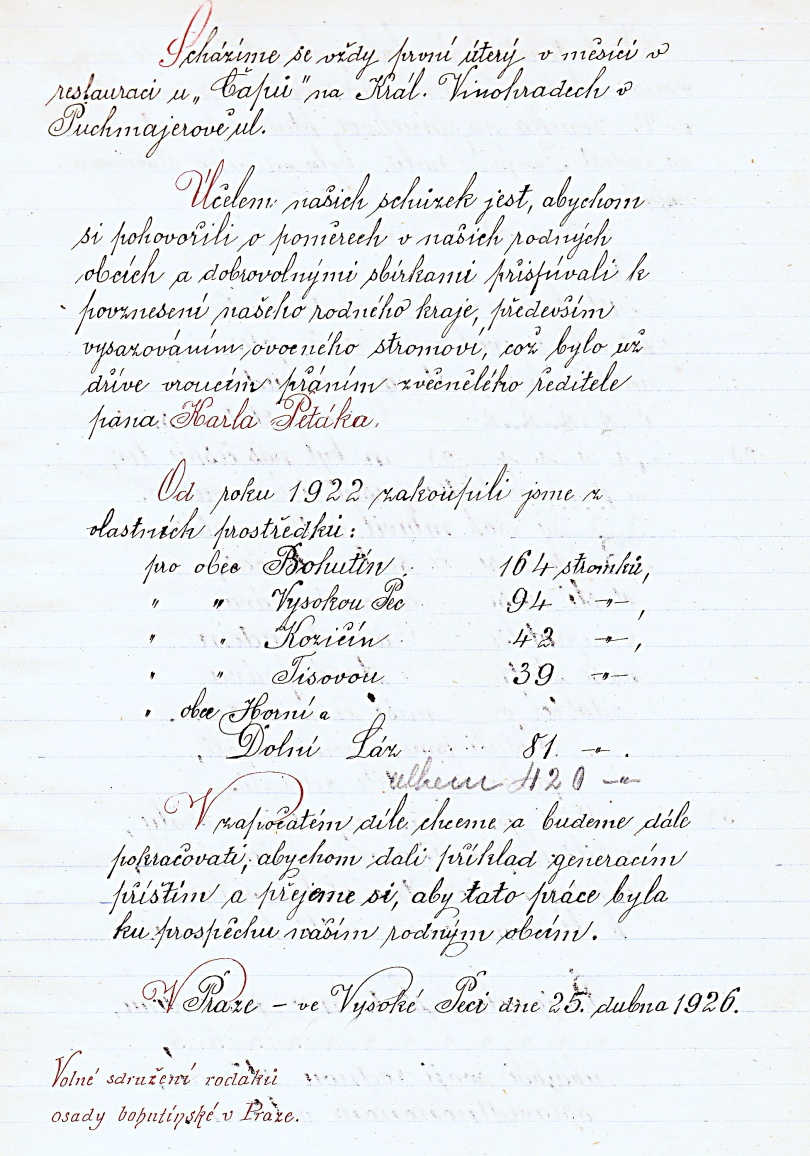 Scházíme se vždy první úterý v měsíci v
restauraci u „Čápů" na Král. Vinohradech v
Puchmajerově ul.
Účelem našich schůzek jest, abychom
si pohovořili o poměrech v našich rodných
obcích a dobrovolnými sbírkami přispívali k
povznesení našeho rodného kraje, především
vysazováním ovocného stromoví, což bylo už
dříve vroucím přáním zvěčnělého ředitele
pana Karla Peťáka.
Od roku 1922 zakoupili jsme z
vlastních prostředků:
pro obec Bohutín 164 stromků,
" " Vysokou Pec 94 -"-,
" " Kozičín 42 -"-,
" " Tisovou 39 -"-
" obce Horní a
Dolní Láz 81 -"-.
celkem 420 -"-
V započatém díle chceme a budeme dále
pokračovati, abychom dali příklad generacím
příštím a přejeme si, aby tato práce byla
ku prospěchu našim rodným obcím.
V Praze - ve Vysoké Peci dne 25. dubna 1926.
Volné sdružení rodáků
osady bohutínské v Praze.